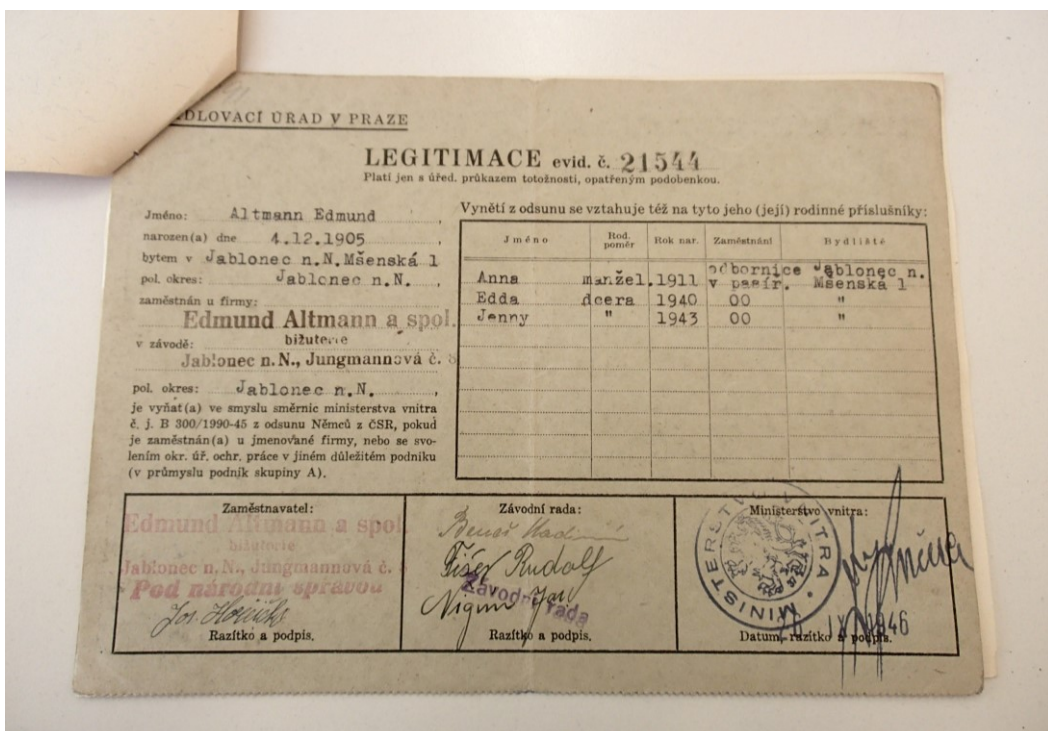 DLOVACÍ ÚŘAD V PRAZE
LEGITIMACE evid. č. 21544
Platí jen s úřed. průkazem totožnosti, opatřeným podobenkou.
Jméno: Altmann Edmund ,
narozen(a) dne 4.12.1905 ,
bytem v Jablonec n.N.Mšenská 1
pol. okres: Jablonec n.N. ,
zaměstnán u firmy:
Edmund Altmann a spol.
v závodě: bižuterie
Jablonec n. N., Jungmannová č. 8
pol. okres: Jablonec n.N. ,
je vyňat(a) ve smyslu směrnic ministerstva vnitra
č. j. B 300/1990-45 z odsunu Němců z ČSR, pokud
je zaměstnán(a) u jmenované firmy, nebo se svo-
lením okr. úř. ochr. práce v jiném důležitém podniku
(v průmyslu podnik skupiny A).
Vynětí z odsunu se vztahuje též na tyto jeho (její) rodinné příslušníky:
Jméno Rod. poměr Rok nar. Zaměstnání Bydliště
Anna manžel. 1911 odbornice v pasír. Jablonec n. Mšenská 1
Edda dcera 1940 00 "
Jenny " 1943 00 "
Zaměstnavatel:
Edmund Altmann a spol.
bižuterie
Jablonec n. N., Jungmannová č.
Pod národní správou
Razítko a podpis.
Závodní rada:
Beneš
Fišer Rudolf
Jan
Závodní rada
Razítko a podpis.
Ministerstvo vnitra:
MINISTERSTVO VNITRA
1946
Datum, razítko a podpis.